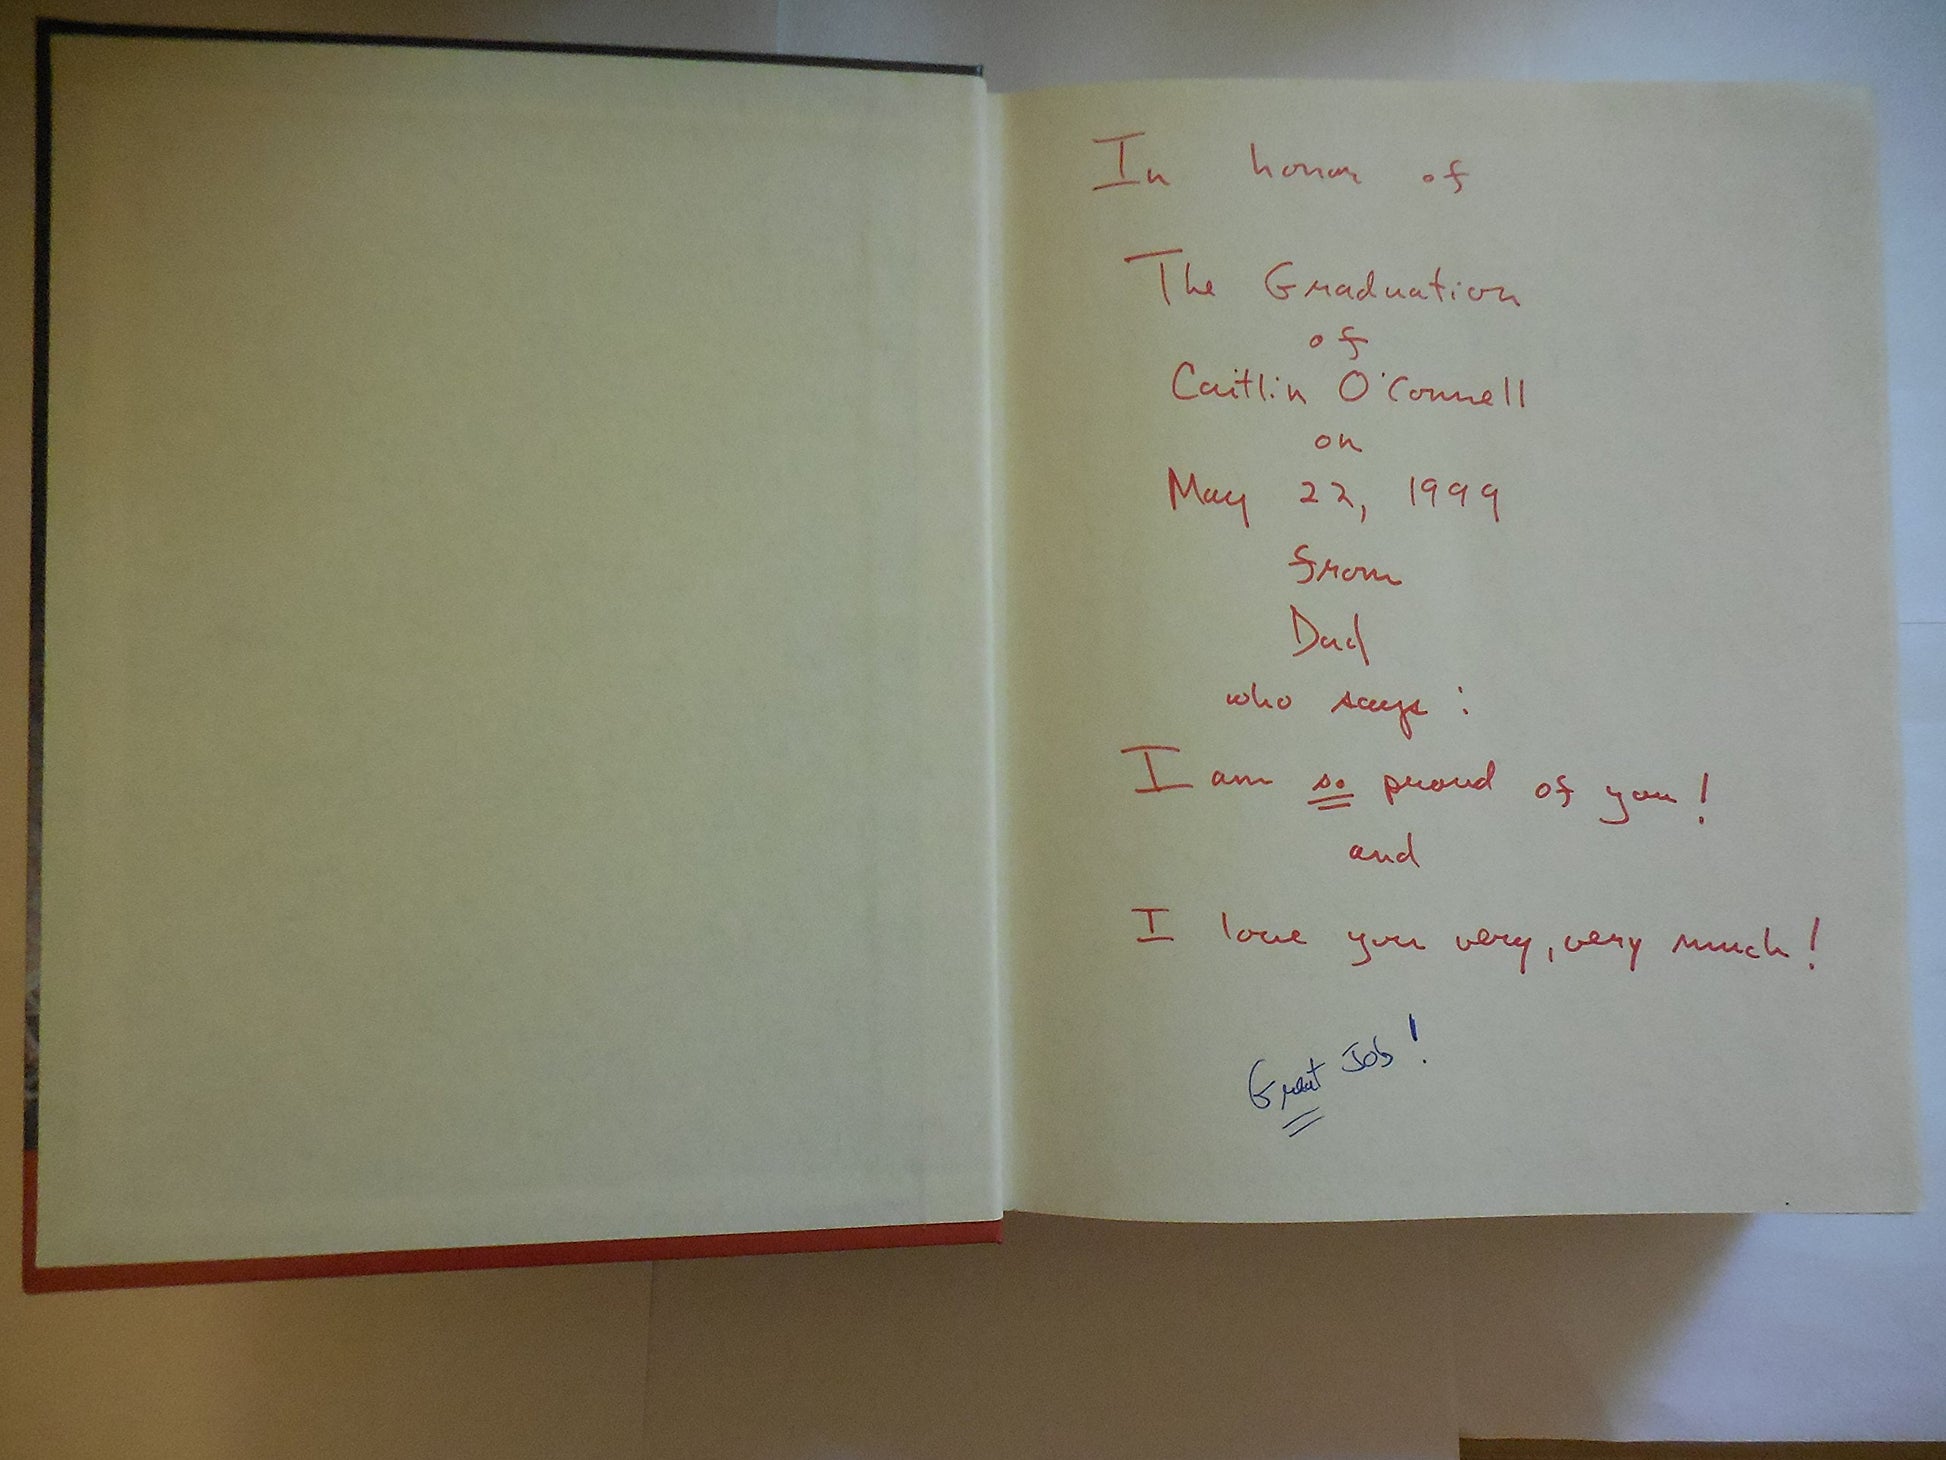 In honor of
The Graduation
of
Caitlin O'Connell
on
May 22, 1999
from
Dad
who says:
I am so proud of you!
and
I love you very, very much!
Great Job!